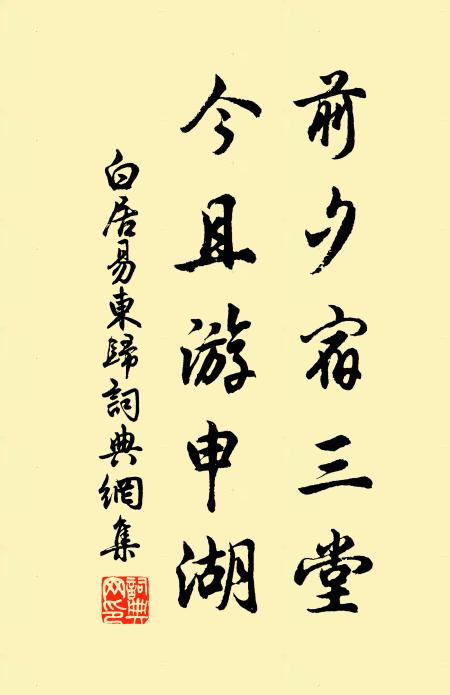 前夕宿三堂
今且游申湖
白居易東歸詞典網集
詞典网印